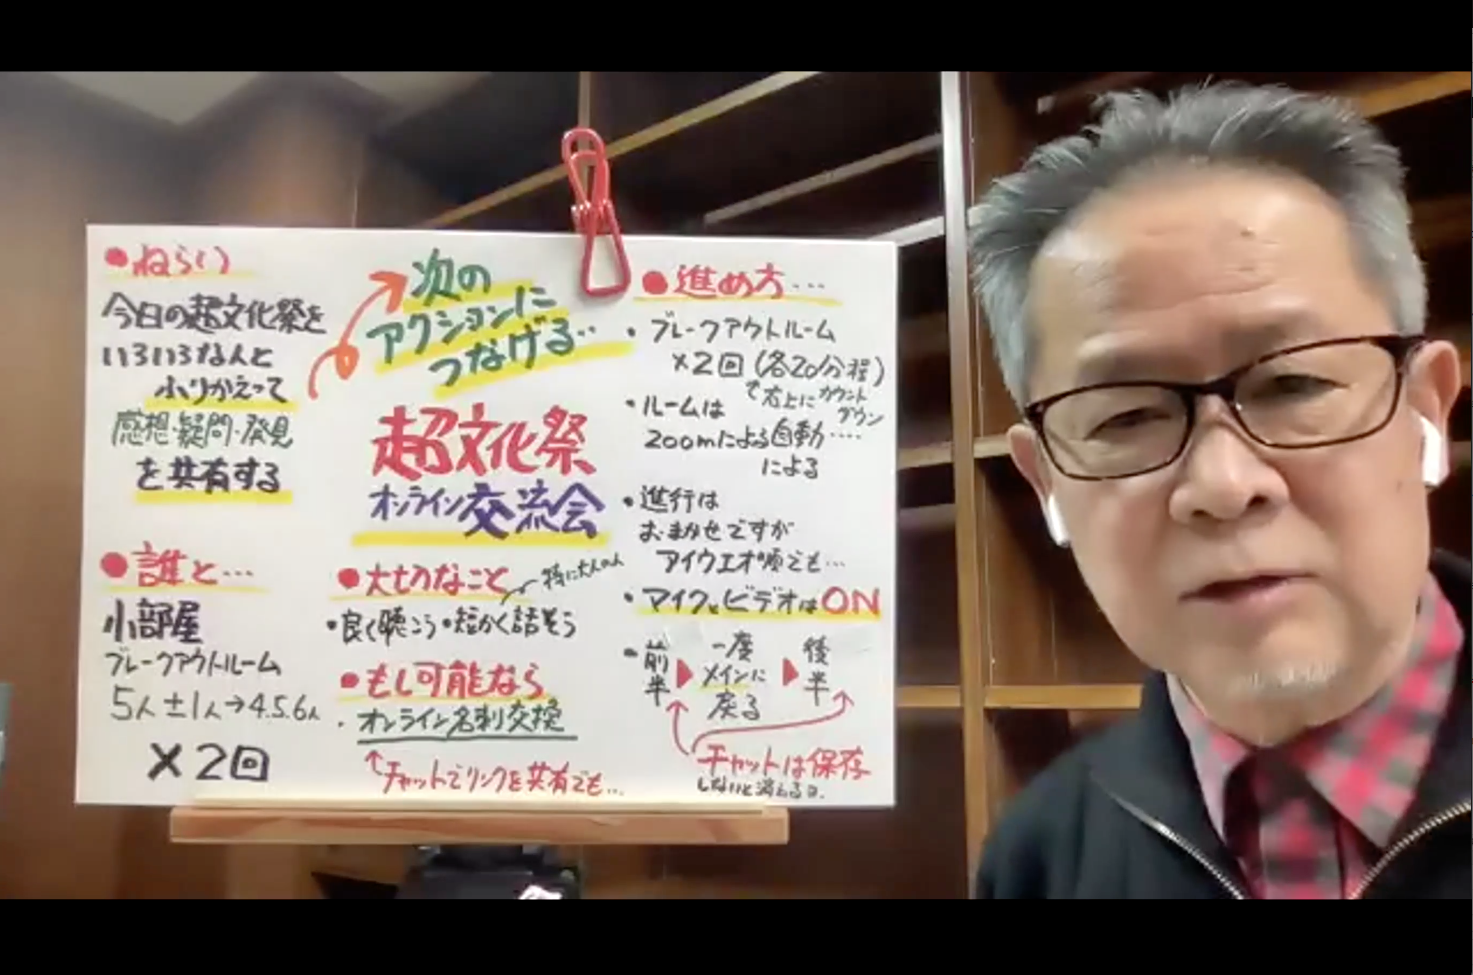 ●ねらい
今日の超文化祭を
いろいろなんと
ふりかえって
感想・疑問・発見
を共有する
●誰と…
小部屋
ブレークアウトルーム
5人±1人→4.5.6人
×2回
次の
アクションに
つなげる…
超文化祭
オンライン交流会
●大切なこと
特に大人の人
・良く聴こう・短かく話そう
●もし可能なら
・オンライン名刺交換
↑チャットでリンクを共有でも…
●進め方…
・ブレークアウトルーム
×2回(各20分程)
右上にカウント
ダウン
・ルームは
zoomによる自動…
による
・進行は
おまかせですが
アイウエオ順でも…
・マイクとビデオはON
・前半▶一度メインに戻る▶後半
チャットは保存
しないと消えるヨ.